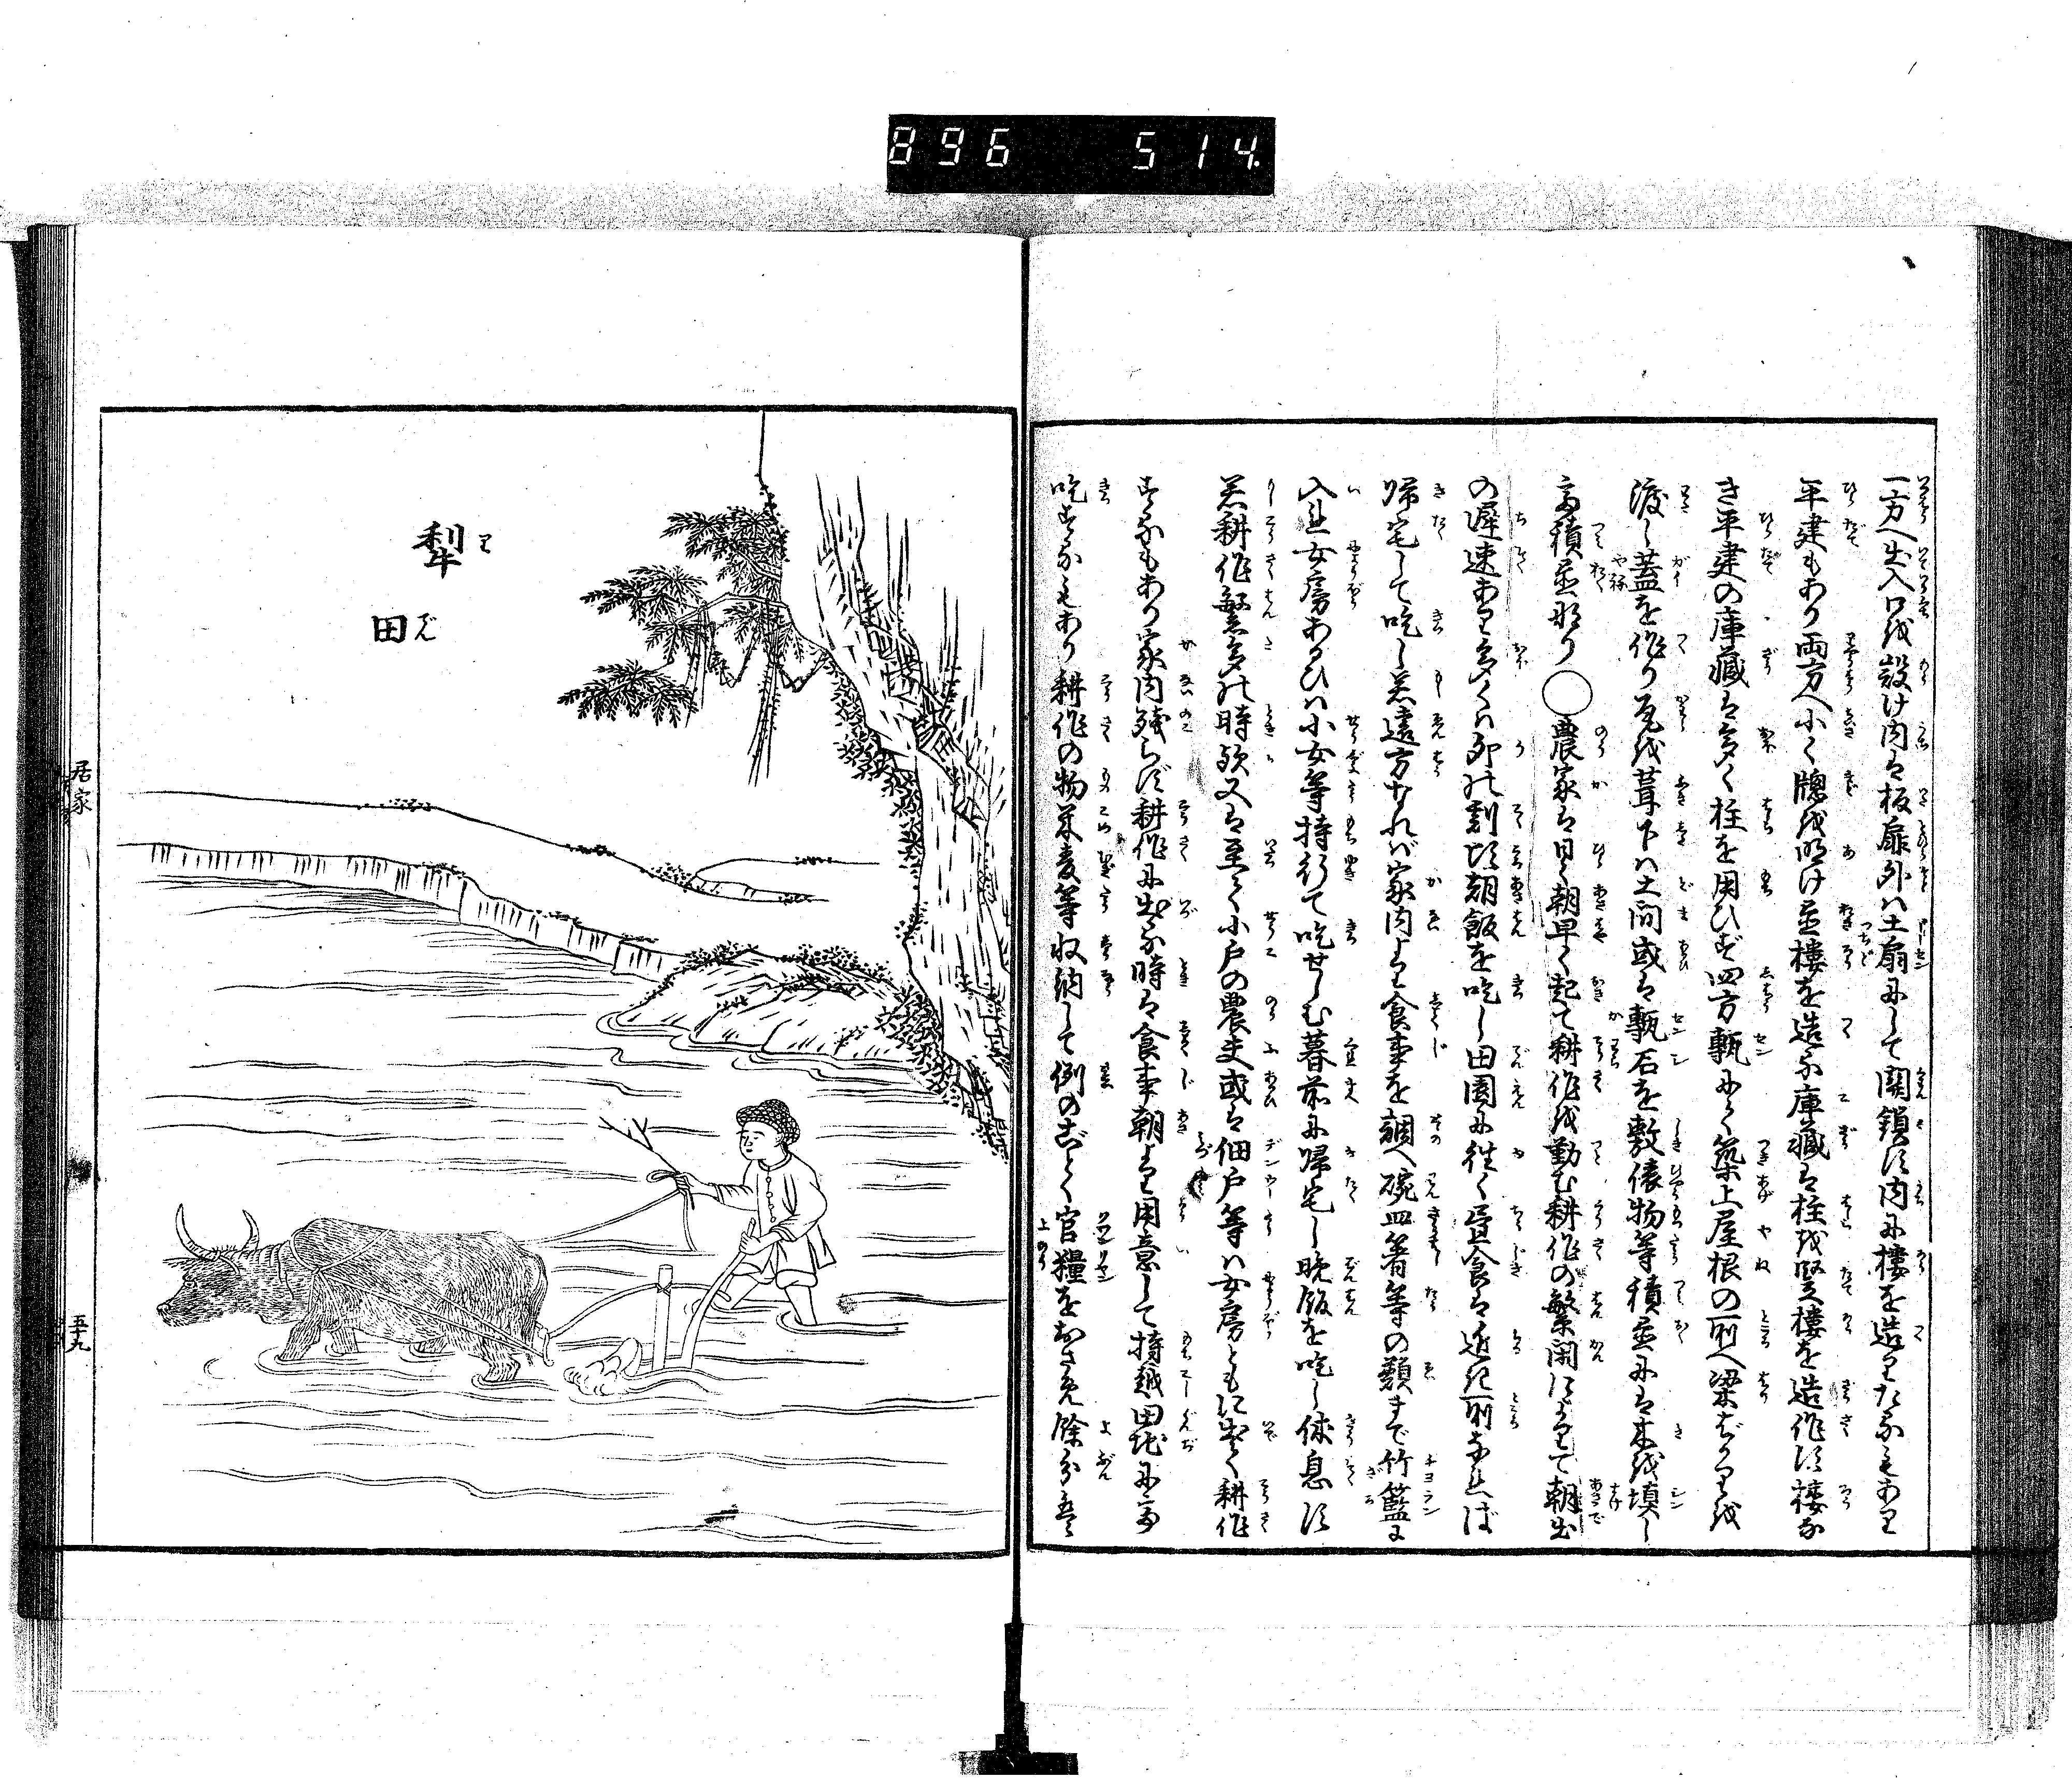 896 514
一方へ出入口を設け内は板扉外は土扇にして関鎖す内に樓を造りたるもあり
平建もあり両方へ小く牕を明け置樓を造る庫藏は柱を竪樓を造作す樓な
き平建の庫藏は多く柱を用ひず四方甎にて築上屋根の所へ梁ばかりを
渡し蓋を作り瓦を葺下は土間或は甎石を敷俵物等積置には木を填し
て積置なり○農家は日々朝早く起て耕作を勤む耕作の繁閑によりて朝出
の遅速あり多くは卯の刻頃朝飯を吃し田園に往く昼食は近き所なれば
帰宅して吃し若遠方なれば家内より食事を調へ碗皿箸等の類まで竹籃に
入れ女房あるひは小女等持行て吃せしむ暮前に帰宅し晩飯を吃し休息す
若耕作繁多の時歟又は至て小戸の農夫或は佃戸等は女房ともに出て耕作
するもあり家内残らず耕作に出る時は食事朝より用意して持越田地にて
吃するもあり耕作の物米麦等収納して例のごとく官糧をおさめ餘分
犂田
りでん
居家
五十九